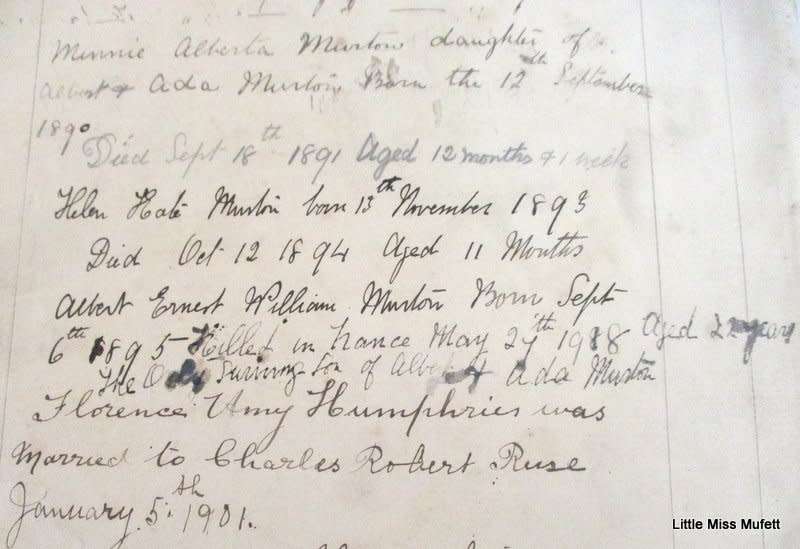 Minnie Alberta Murton daughter of
Albert & Ada Murton Born the 12th September
1890
Died Sept 18th 1891 Aged 12 months & 1 week
Helen Kate Murton born 13th November 1893
Died Oct 12 1894 Aged 11 Months
Albert Ernest William Murton Born Sept
6th 1895 Killed in France May 27th 1918 Aged 22 years
The Only Surviving Son of Albert & Ada Murton
Florence Amy Humphries was
Married to Charles Robert Ruse
January 5th 1901.
Little Miss Mufett